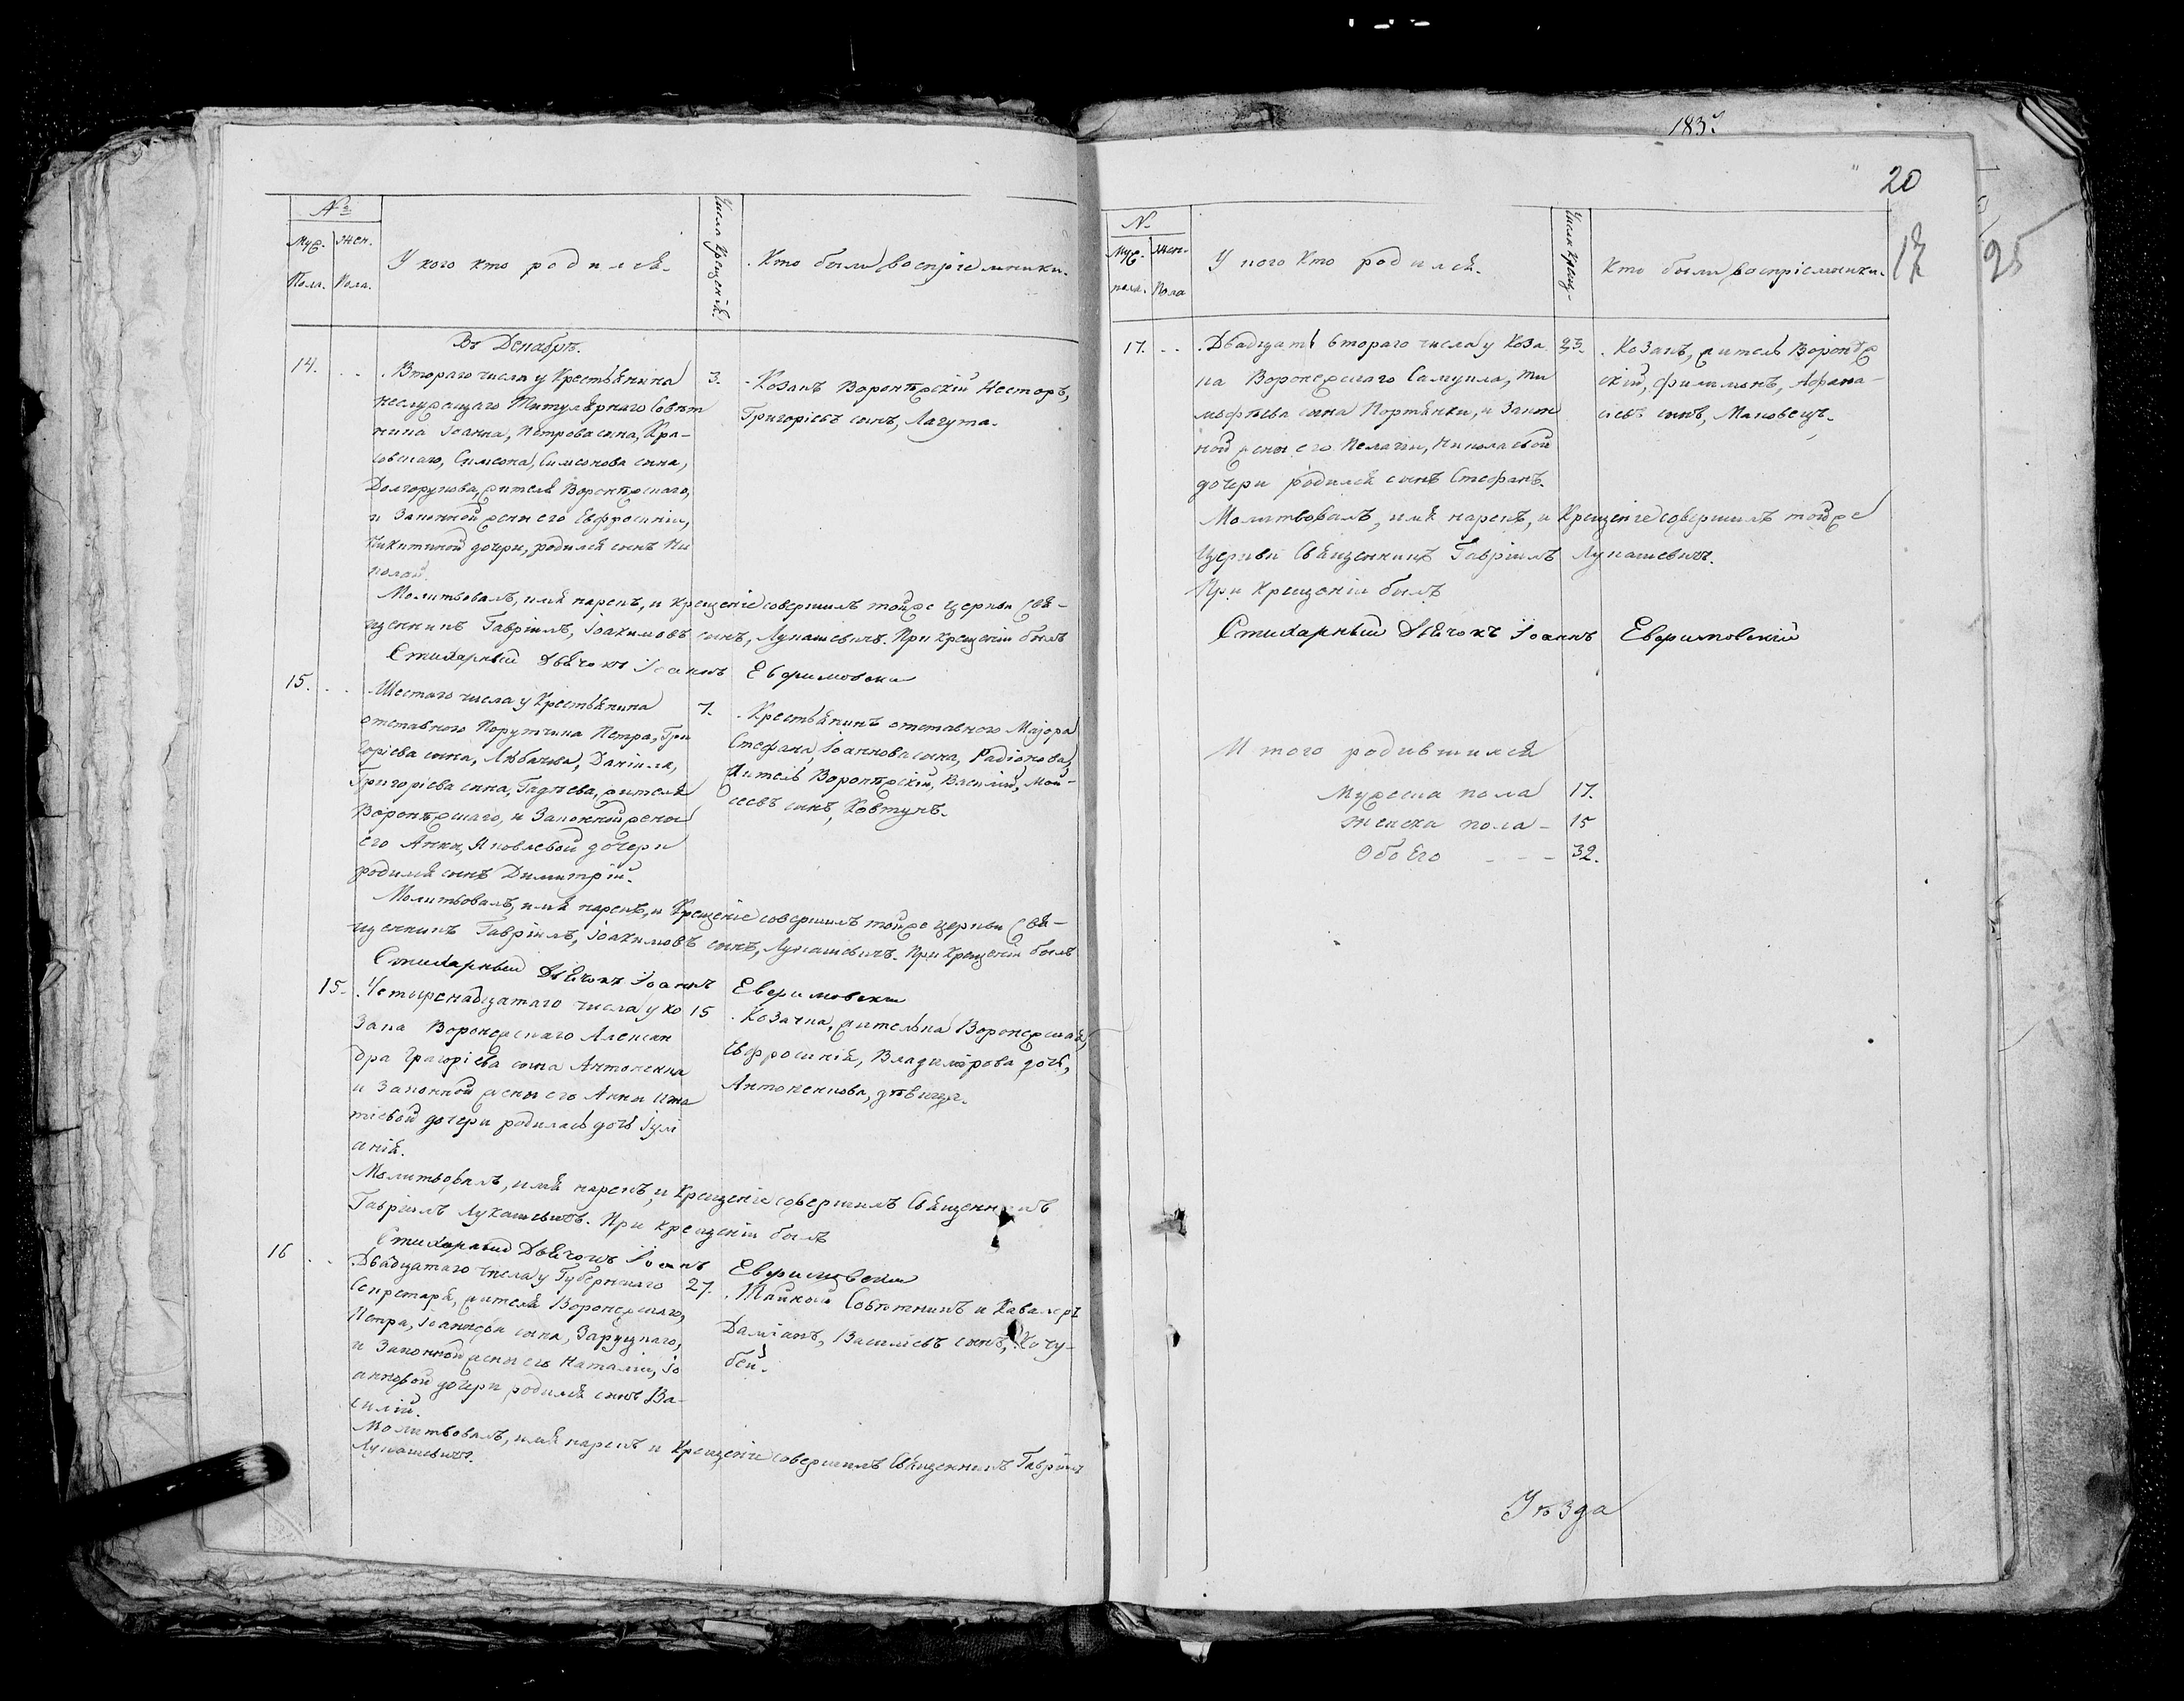 №
Муж. Жен.
Пола. Пола.
У кого кто родился.
Числа Крещенія.
Кто были воспріемники.
Въ Декабрѣ.
14. . . Втораго числа у Крестьянина
неслужащаго Титулярнаго Совѣт
ника Іоанна, Петрова сына, Кра-
совскаго, Симеона, Симеонова сына,
Долгорукова, жителя Воронѣжскаго,
и Законной жены его Евфросиніи,
Никитиной дочери, родился сынъ Ни
колай.
3. Козакъ Воронѣжскій Несторъ,
Григоріевъ сынъ, Лагута.
Молитвовалъ, имя нарекъ, и крещеніе совершилъ тойже церкви Свя-
щенникъ Гавріилъ, Іоакимовъ сынъ, Лукашевичъ. При крещеніи былъ
Стихарный Дьячокъ Іоаннъ
15. . . Шестаго числа у Крестьянина
отставного Порутчика Петра, Гри
горіева сына, Даніила,
Григоріева сына, жителя
Воронѣжскаго, и Законной жены
его Анны, Яковлевой дочери
родился сынъ Димитрій.
7. Крестьянинъ отставного Маіора
Стефана, Іоаннова сына, Радіонова,
житель Воронѣжскій, Василій, Мои-
сеевъ сынъ, Ковтунъ.
Молитвовалъ, имя нарекъ, и Крещеніе совершилъ тойже церкви Свя-
щенникъ Гавріилъ, Іоакимовъ сынъ, Лукашевичъ. При Крещеніи былъ
Стихарный Дьячокъ Іоаннъ
15. Четыренадцатаго числа у ко
зака Воронежскаго Алексан
дра Григоріева сына Антоненка
и Законной жены его Анны Игна
тіевой дочери родилась дочь Іулі
анія.
15 Козачка, жителька Воронежская,
Евфросинія, Владимірова дочь,
Антоненкова, дѣвица.
Молитвовалъ, имя нарекъ, и Крещеніе совершилъ Священникъ
Гавріилъ Лукашевичъ. При крещеніи былъ
Стихарный Дьячокъ Іоаннъ
16 . . Двадцатаго числа у Губернскаго
Секретаря, жителя Воронежскаго,
Петра, Іоаннова сына, Заруцкаго,
и Законной жены его Наталіи, Іо
анновой дочери, родился сынъ Ва-
силій.
27. Тайный Совѣтникъ и Кавалеръ
Даміанъ, Василіевъ сынъ, Кочу-
бей.
Молитвовалъ, имя нарекъ и Крещеніе совершилъ Священникъ Гавріилъ
Лукашевичъ.
20
№
Муж. Жен.
пола. Пола
У кого Кто родился.
Числа Крещ-
Кто были воспріемники.
17
25
17. . . Двадцать втораго числа у Коза
ка Воронежскаго Самуила, Ти
мофѣева сына Портянки, и Закон
ной жены его Пелагіи, Николаевой
дочери родился сынъ Стефанъ.
23. Козакъ, житель Воронѣж
скій, Филимонъ, Афана-
сіевъ сынъ, Маковецъ.
Молитвовалъ, имя нарекъ, и Крещеніе совершилъ тойже
Церкви Священникъ Гавріилъ Лукашевичъ.
При Крещеніи былъ
Стихарный Дьячокъ Іоаннъ
Итого родившихся
Мужеска пола 17.
Женска пола - 15
Обоего - - - 32.
Уѣзда